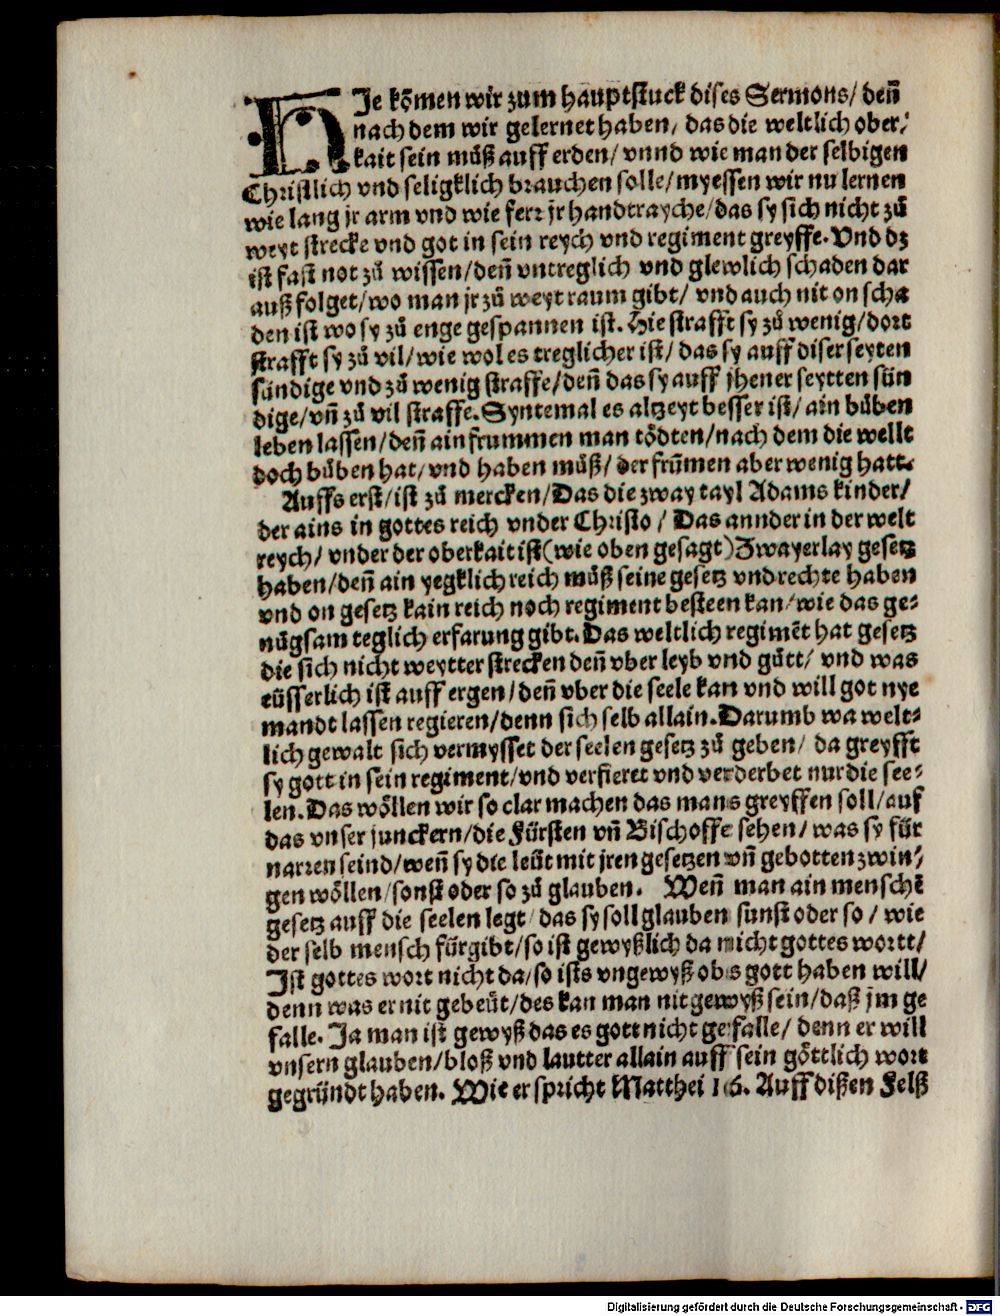 HIe kõmen wir zum hauptstuck dises Sermons/ deñ
nach dem wir gelernet haben/ das die weltlich ober⸗
kait sein můß auff erden/ vnnd wie man der selbigen
Christlich vnd seligklich brauchen solle/ myessen wir nu lernen
wie lang jr arm vnd wie ferr jr handt rayche/ das sy sich nicht zů
weyt strecke vnd got in sein reych vnd regiment greyffe. Vnd dz
ist fast not zů wissen/ deñ vntreglich vnd glewlich schaden dar
auß folget/ wo man jr zů weyt raum gibt/ vnd auch nit on scha
den ist wo sy zů enge gespannen ist. Hie strafft sy zů wenig/ dort
strafft sy zů vil/ wie wol es treglicher ist/ das sy auff diser seyten
sündige vnd zů wenig straffe/ deñ das sy auff jhener seytten sün
dige/ vñ zů vil straffe. Syntemal es altzeyt besser ist/ ain bůben
leben lassen/ deñ ain frummen man tödten/ nach dem die wellt
doch bůben hat/ vnd haben můß/ der frũmen aber wenig hatt.
Auffs erst/ ist zů mercken/ Das die zway tayl Adams kinder/
der ains in gottes reich vnder Christo/ Das annder in der welt
reych/ vnder der oberkait ist (wie oben gesagt) Zwayerlay gesetz
haben/ deñ ain yegklich reich můß seine gesetz vnd rechte haben
vnd on gesetz kain reich noch regiment besteen kan/ wie das ge⸗
nůgsam teglich erfarung gibt. Das weltlich regimẽt hat gesetz
die sich nicht weytter strecken deñ vber leyb vnd gůtt/ vnd was
eüsserlich ist auff ergen/ deñ vber die seele kan vnd will got nye
mandt lassen regieren/ denn sich selb allain. Darumb wa welt⸗
lich gewalt sich vermysset der seelen gesetz zů geben/ da greyfft
sy gott in sein regiment/ vnd verfieret vnd verderbet nur die see⸗
len. Das wöllen wir so clar machen das mans greyffen soll/ auf
das vnser junckern/ die Fürsten vñ Bischoffe sehen/ was sy für
narren seind/ weñ sy die leüt mit jren gesetzen vñ gebotten zwin⸗
gen wöllen/ sonst oder so zů glauben. Weñ man ain menschẽ
gesetz auff die seelen legt/ das sy soll glauben sunst oder so/ wie
der selb mensch fürgibt/ so ist gewyßlich da nicht gottes wortt/
Ist gottes wort nicht da/ so ists vngewyß obs gott haben will/
denn was er nit gebeüt/ des kan man nit gewyß sein/ daß jm ge
falle. Ja man ist gewyß das es gott nicht gefalle/ denn er will
vnsern glauben/ bloß vnd lautter allain auff sein göttlich wort
gegründt haben. Wie er spricht Matthei 16. Auff dißen Felß
Digitalisierung gefördert durch die Deutsche Forschungsgemeinschaft - DFG